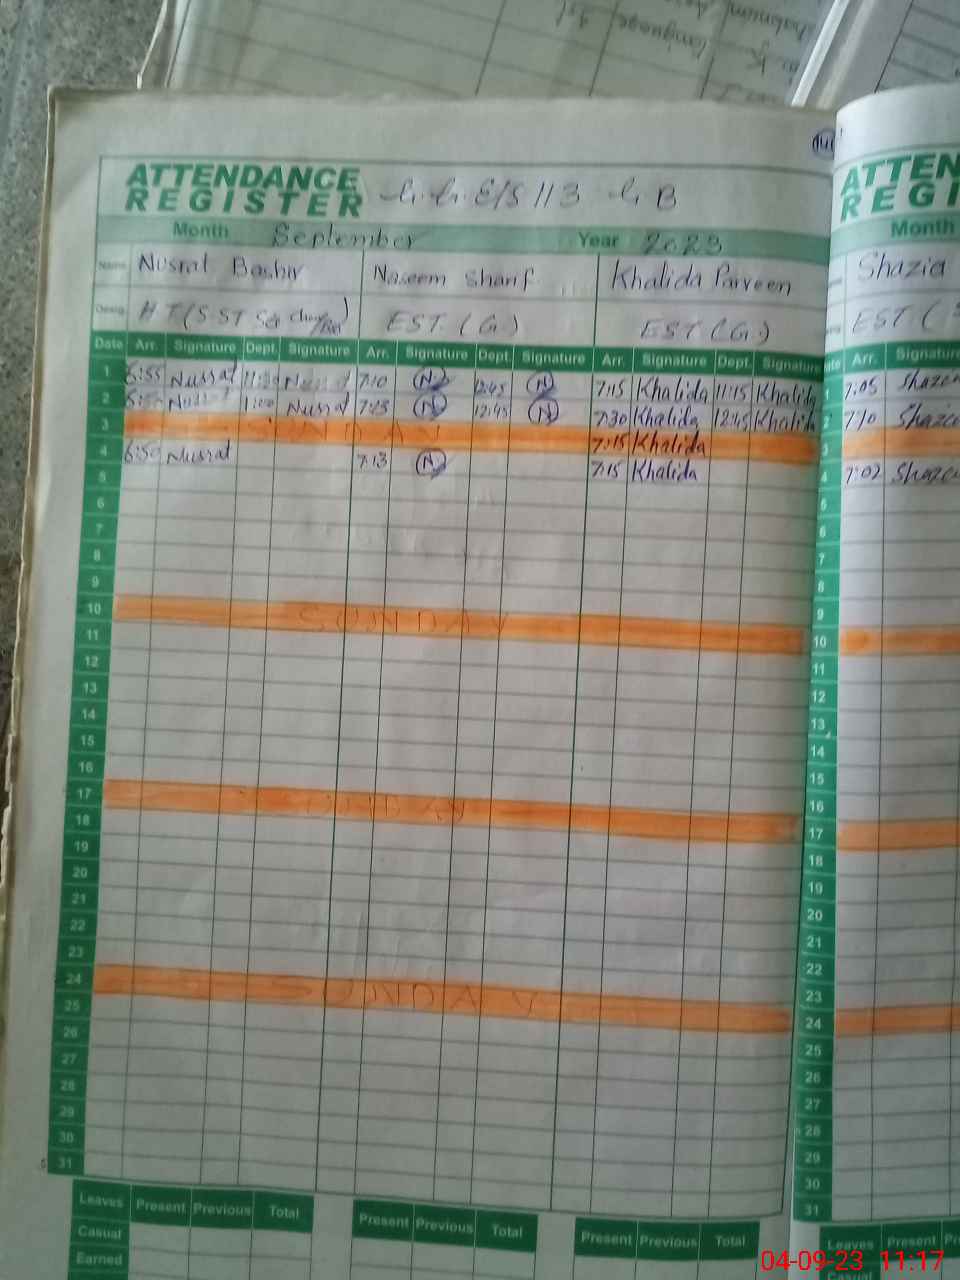 ATTENDANCE REGISTER G.G.E/S 113 G B
Month September Year 2023
Name Nusrat Bashir Naseem Sharif Khalida Parveen
Desig. H T (S.ST EST. (G.) EST (G.)
Date Arr. Signature Dept. Signature Arr. Signature Dept. Signature Arr. Signature Dept. Signature
1 6:55 Nusrat Nusrat 7:10 N 12:45 N 7:15 Khalida 11:15 Khalida
2 Nusrat Nusrat 7:13 N 12:45 N 7:30 Khalida 12:45 Khalida
3 SUNDAY 7:15 Khalida
4 6:50 Nusrat 7:13 N 7:15 Khalida
5
6
7
8
9
10 SUNDAY
11
12
13
14
15
16
17 SUNDAY
18
19
20
21
22
23
24 SUNDAY
25
26
27
28
29
30
31
Leaves Present Previous Total Present Previous Total Present Previous Total
Casual
Earned
ATTEN
REGI
Month
Shazia
EST (
Arr. Signature
1 7:05
2 7:10
3
4 7:02
5
6
7
8
9
10
11
12
13
14
15
16
17
18
19
20
21
22
23
24
25
26
27
28
29
30
31
Leaves Present
04-09-23 11:17